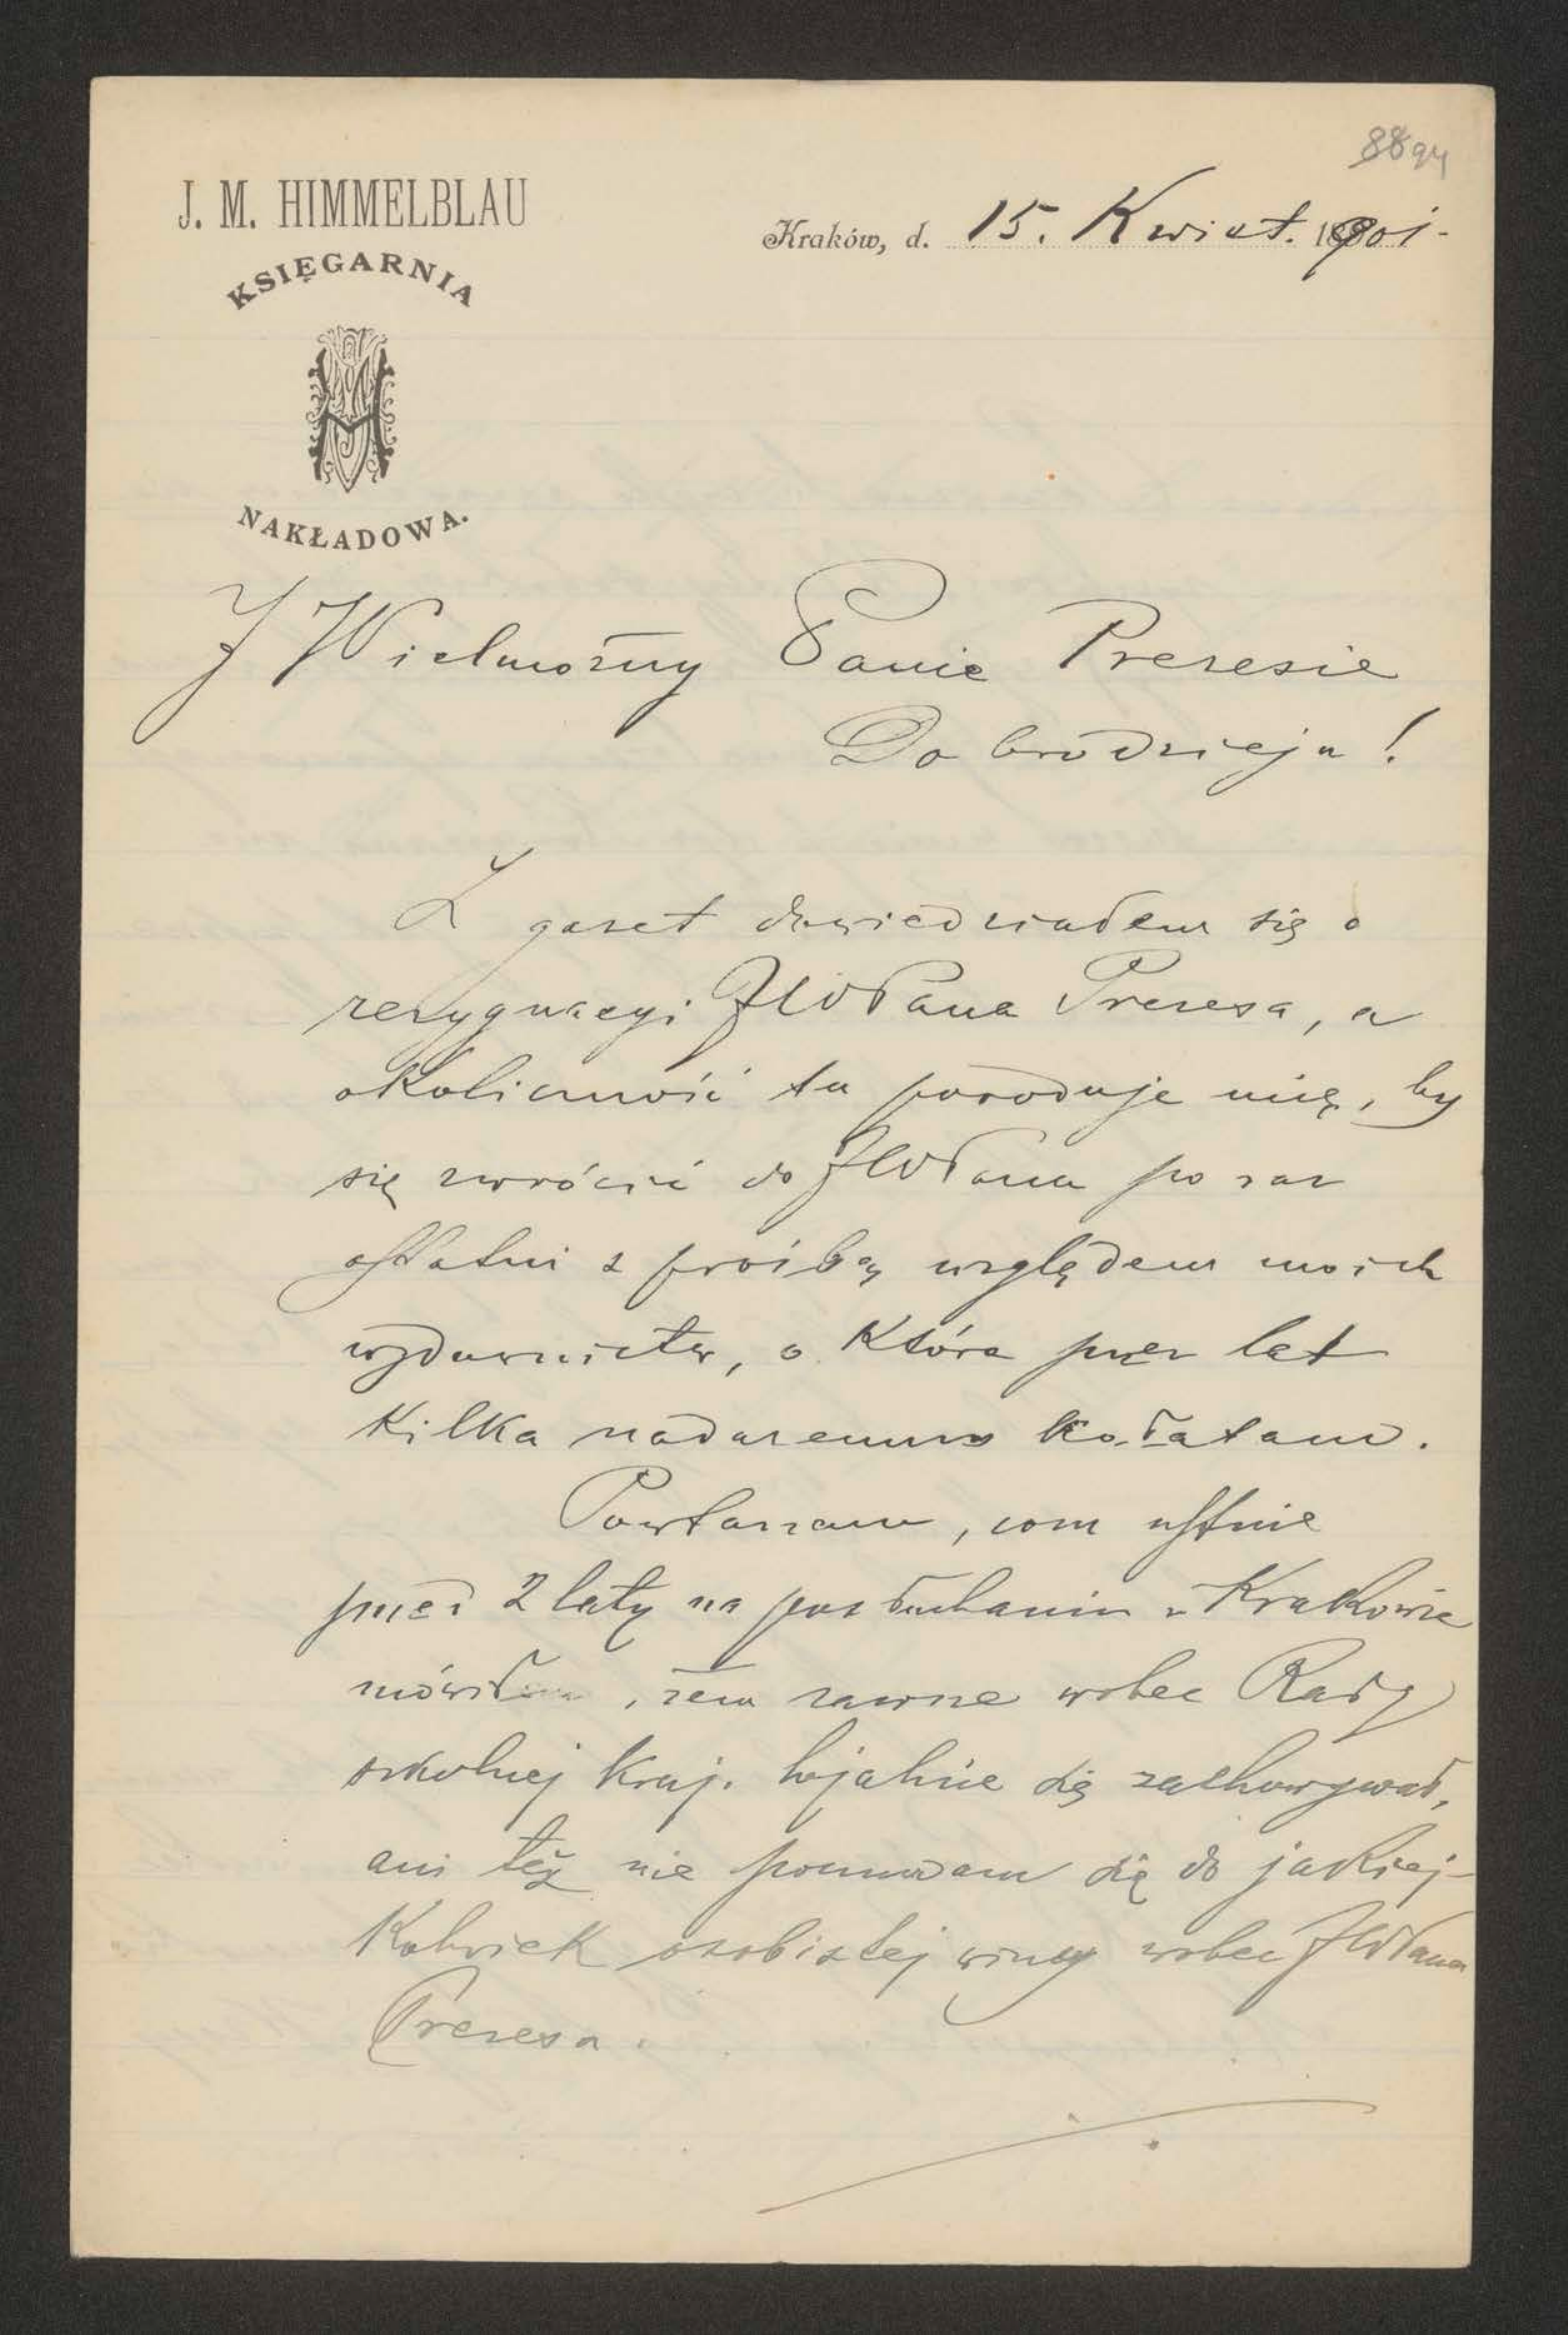 88 94
J. M. HIMMELBLAU
KSIĘGARNIA
NAKŁADOWA.
Kraków, d. 15. Kwiet. 1901.
JWielmożny Panie Prezesie
Dobrodzieju!
Z gazet dowiedziałem się o
rezygnacyi JWPana Prezesa, a
okoliczność ta powoduje mię, by
się zwrócić do JWPana po raz
ostatni z prośbą względem moich
wydawnictw, o które przez lat
kilka nadaremno kołatam.
Powtarzam, com ustnie
przed 2 laty na posłuchaniu w Krakowie
mówiłem, żem zawsze wobec Rady
szkolnej kraj. lojalnie się zachowywał,
ani też nie poczuwam się do jakiej-
kolwiek osobistej winy wobec JWPana
Prezesa.